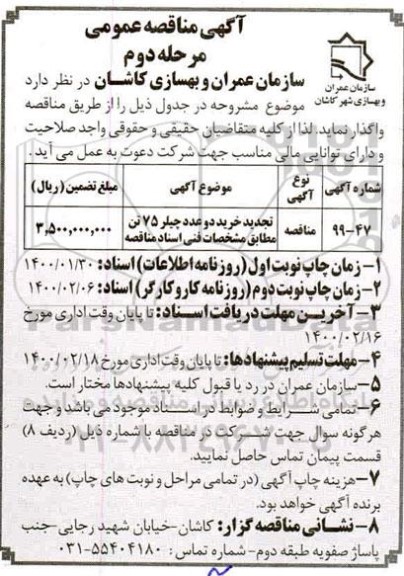 آگهی مناقصه عمومی
مرحله دوم
سازمان عمران
و بهسازی شهر کاشان
سازمان عمران و بهسازی کاشـان در نظر دارد
موضوع مشروحه در جدول ذیل را از طریق مناقصه
واگذار نماید. لذا از کلیه متقاضیان حقیقی و حقوقی واجد صلاحیت
و دارای توانایی مالی مناسب جهت شرکت دعوت به عمل می آید.
شماره آگهی نوع آگهی موضوع آگهی مبلغ تضمین (ریال)
۹۹-۴۷ مناقصه تجدید خرید دو عدد چیلر ۷۵ تن مطابق مشخصات فنی اسناد مناقصه ۳,۵۰۰,۰۰۰,۰۰۰
۱- زمان چاپ نوبت اول (روزنامه اطلاعات) اسناد: ۱۴۰۰/۰۱/۳۰
۲- زمان چاپ نوبت دوم (روزنامه کار و کارگر) اسناد: ۱۴۰۰/۰۲/۰۶
۳- آخریـن مهلت دریافت اسـناد: تا پایان وقت اداری مورخ
۱۴۰۰/۰۲/۱۶
۴- مهلت تسلیم پیشنهادها: تا پایان وقت اداری مورخ ۱۴۰۰/۰۲/۱۸
۵- سازمان عمران در رد یا قبول کلیه پیشنهادها مختار است.
۶- تمامی شرایط و ضوابط در اسناد موجود می باشد و جهت
هرگونه سوال جهت شرکت در مناقصه با شماره ذیل (ردیف ۸)
قسمت پیمان تماس حاصل نمایید.
۷- هزینه چاپ آگهی (در تمامی مراحل و نوبت های چاپ) به عهده
برنده آگهی خواهد بود.
۸- نشـانی مناقصه گزار: کاشان-خیابان شهید رجایی-جنب
پاساژ صفویه طبقه دوم-شماره تماس: ۵۵۴۰۴۱۸۰-۰۳۱